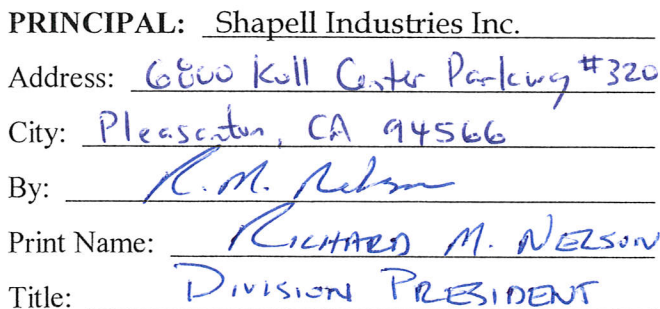 PRINCIPAL: Shapell Industries Inc.
Address: 6800 Koll Center Parkway #320
City: Pleasanton, CA 94566
By: R. M. Nelson
Print Name: RICHARD M. NELSON
Title: DIVISION PRESIDENT